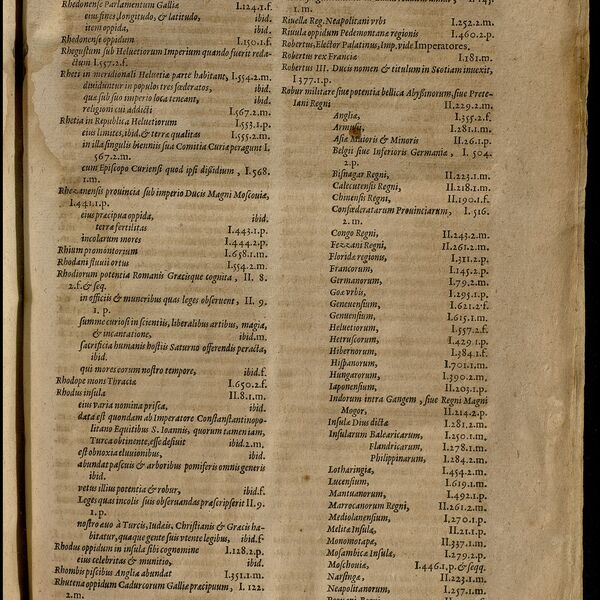 Rhedonense Parlamentum Galliæ I.124.1.f.
eius fines, longitudo, & latitudo, ibid.
item oppida, ibid.
Rhedonense oppidum I.150.1.f.
Rhegustum sub Heluetiorum Imperium quando fuerit reda-
ctum I.557.2.f.
Rheti in meridionali Heluetiæ parte habitant, I.554.2.m.
diuiduntur in populos tres fœderatos, ibid.
quæ sub suo imperio loca teneant, ibid.
religioni cui addicti I.567.2.m.
Rhetia in Republica Heluetiorum I.553.1.p.
eius limites, ibid. & terra qualitas I.555.2.m.
in illa singulis biennis sua Comitia Curiæ peragunt I.
567.2.m.
cum Episcopo Curiensi quod ipsi dissidium, I.568.
1.m.
Rhezanensis prouincia sub imperio Ducis Magni Moscouiæ,
I.441.1.p.
eius præcipua oppida, ibid.
terra fertilitas I.443.1.p.
incolarum mores I.444.2.p.
Rhium promontorium I.658.1.m.
Rhodani fluuii ortus I.554.2.m.
Rhodiorum potentia Romanis Græcisque cognita, II. 8.
2.f. & seq.
in officiis & muneribus quas leges obseruent, II. 9.
1. p.
summe curiosi in scientiis, liberalibus artibus, magia,
& incantatione, ibid.m.
sacrificia humanis hostiis Saturno offerendis peracta,
ibid.
qui mores eorum nostro tempore, ibid.f.
Rhodope mons Thraciæ I.650.2.f.
Rhodus insula II.8.1.m.
eius varia nomina prisca, ibid.
data est quondam ab Imperatore Constanstantinopo-
litano Equitibus S. Ioannis, quorum tamen iam,
Turca obtinente, esse desiuit ibid.2.m.
est obnoxia eluuionibus, ibid.
abundat pascuis & arboribus pomiferis omnis generis
ibid.
vetus illius potentia & robur, ibid.f.
Leges quas incolis suis obseruandas præscripserit II.9.
1.p.
nostro æuo à Turcis, Iudæis, Christianis & Græcis ha-
bitatur, quæ gente suis vtente legibus, ibid.f.
Rhodus oppidum in insula sibi cognomine I.128.2.p.
eius celebritas & munitio, ibid.
Rhombis piscibus Anglia abundat I.351.1.m.
Rhutena oppidum Cadurcorum Galliæ præcipuum, I. 122.
2.m.
1.m.
Riuella Reg. Neapolitani vrbs I.252.2.m.
Riuula oppidum Pedemontanæ regionis I.460.2.p.
Robertus, Elector Palatinus, Imp. vide Imperatores.
Robertus rex Franciæ I.181.m.
Robertus III. Ducis nomen & titulum in Scotiam inuexit,
I.377.1.p.
Robur militare siue potentia bellica Abyssinorum, siue Prete-
Iani Regni II.229.2.m.
Angliæ, I.355.2.f.
I.281.1.m.
Asiæ Maioris & Minoris II.26.1.p.
Belgii siue Inferioris Germaniæ, I. 504.
2.p.
Bisnagar Regni, II.223.1.m.
Calecutensis Regni, II.218.1.m.
Chinensis Regni, II.190.1.f.
Confœderatarum Prouinciarum, I. 516.
2.m.
Congo Regni, II.243.2.m.
Fezzani Regni, II.261.2.m.
Floridæ regionis, I.311.2.p.
Francorum, I.145.2.p.
Germanorum, I.79.2.m.
Goæ vrbis, I.295.1.p.
Geneuensium, I.621.2.f.
Genuensium, I.615.1.m.
Heluetiorum, I.557.2.f.
Hetruscorum, I.429.1.p.
Hibernorum, I.384.1.f.
Hispanorum, I.701.1.m.
Hungarorum, I.390.2.m.
Iaponensium, II.203.1.p.
Indorum intra Gangem, siue Regni Magni
Mogor, II.214.2.p.
Insulæ Diu dictæ I.281.2.m.
Insularum Balearicarum, I.250.1.m.
Flandricarum, I.278.1.m.
Philippinarum, I.284.2.m.
Lotharingiæ, I.454.2.m.
Lucensium, I.619.1.m.
Mantuanorum, I.492.1.p.
Marrocanorum Regni, II.261.2.m.
Mediolanensium, I.270.1.p.
Melitæ Insulæ, II.21.1.p.
Monomotapæ, II.337.1.m.
Mosambicæ Insulæ, I.279.2.p.
Moschouiæ, I.446.1.p. & seqq.
Narsingæ, II.223.1.m.
Neapolitanorum, I.257.1.m.